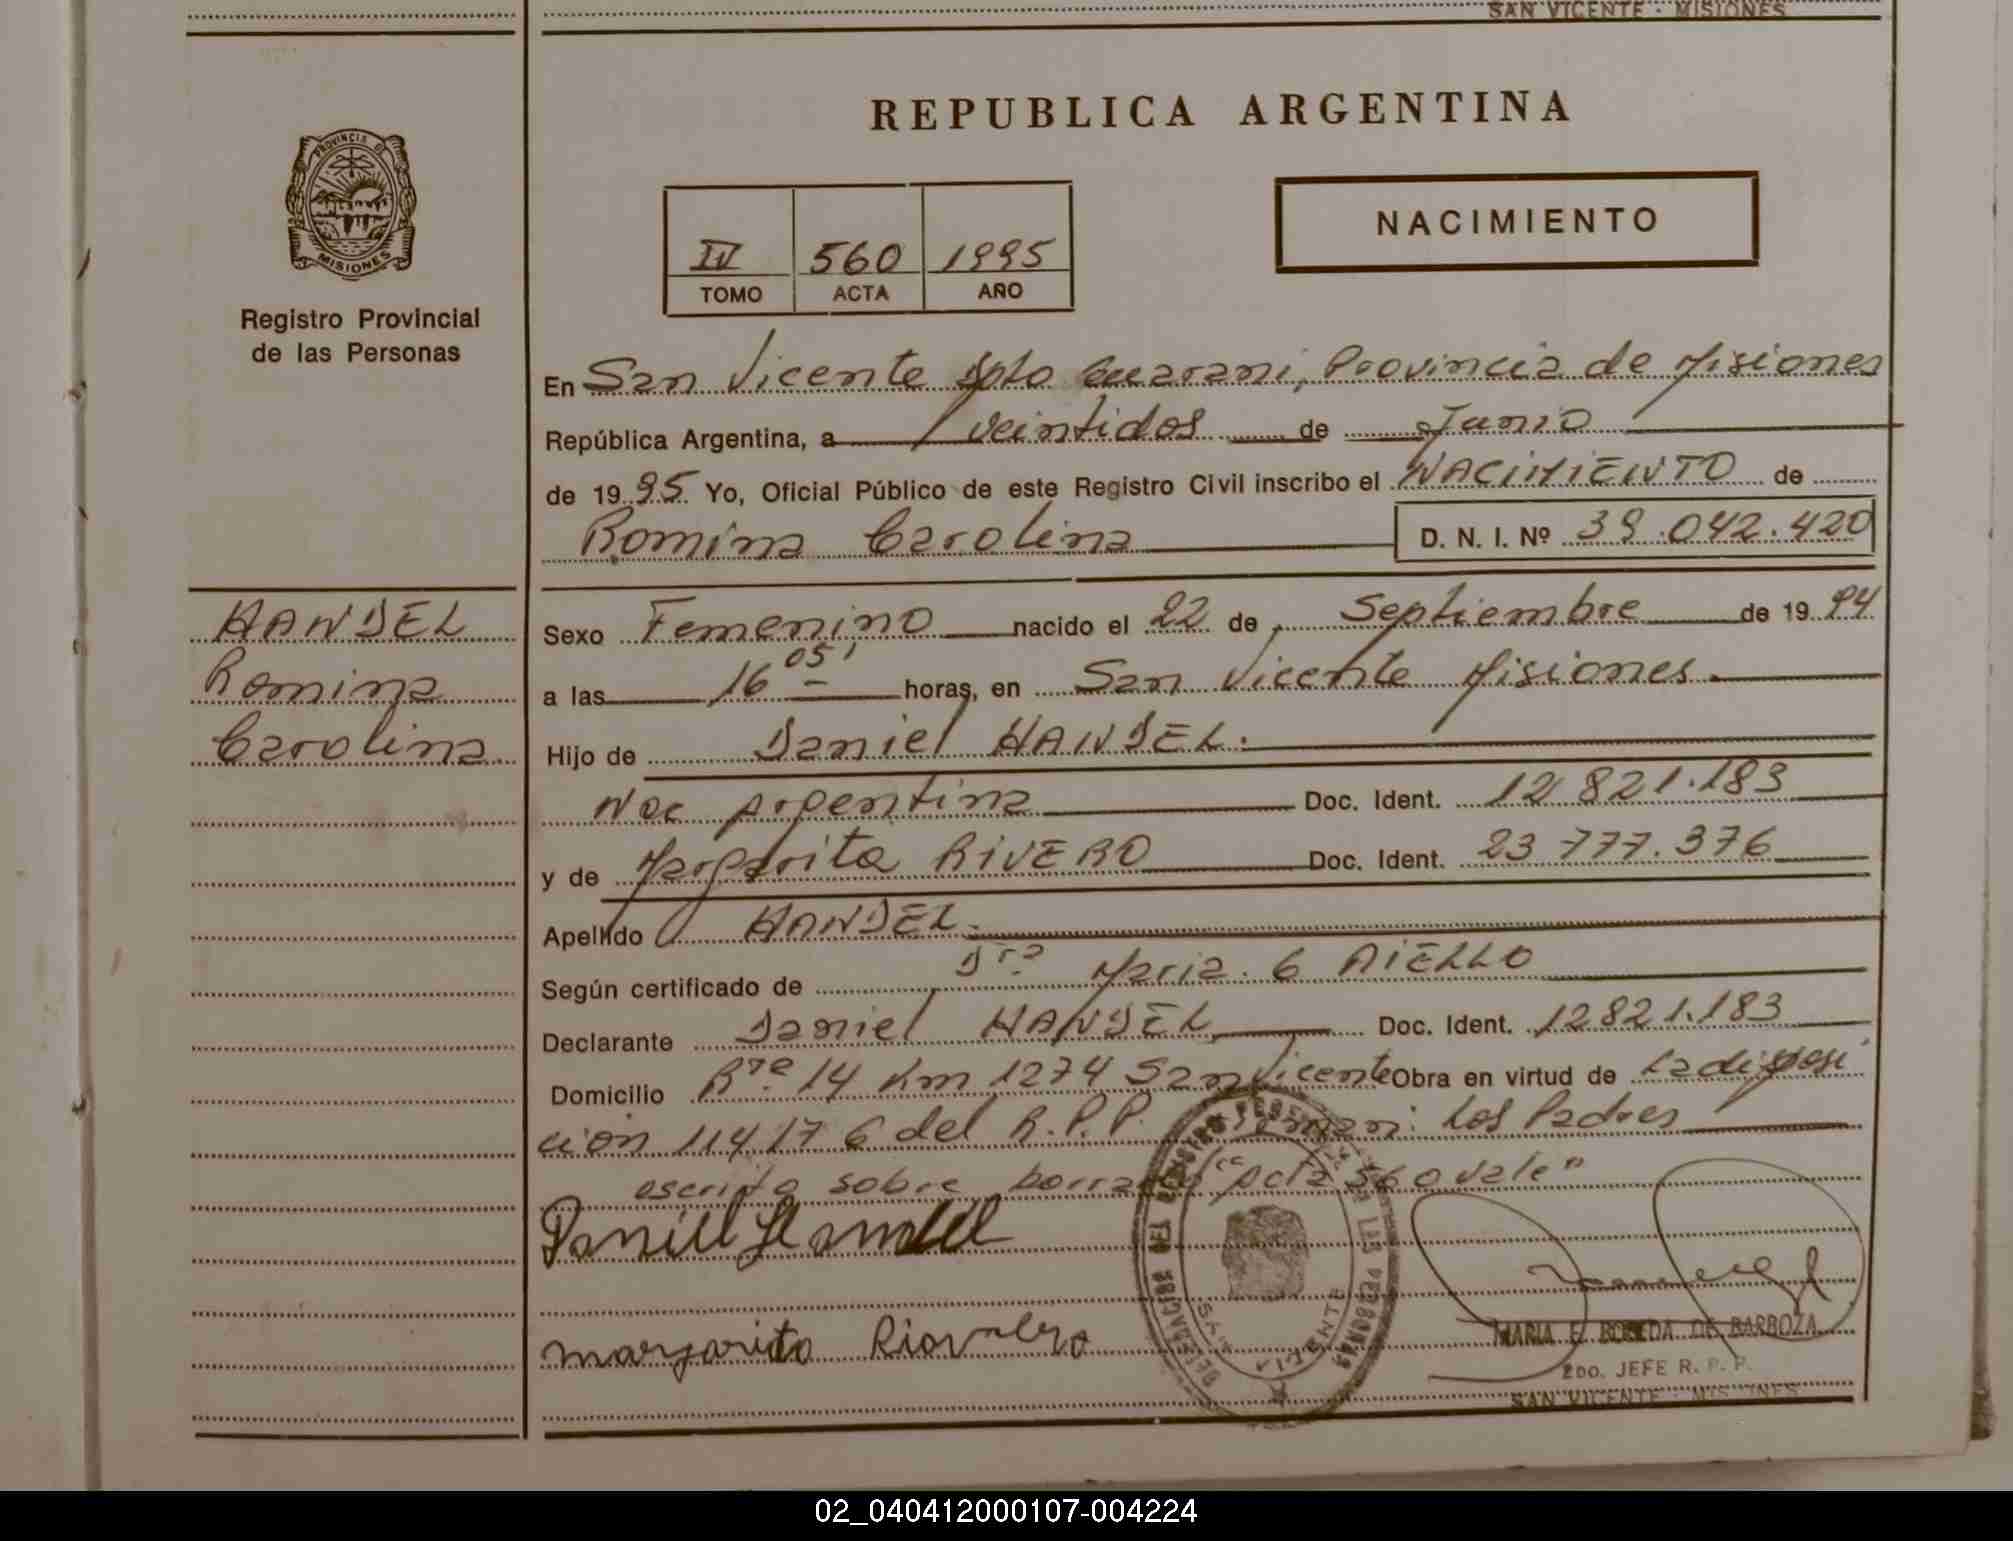 SAN VICENTE - MISIONES
REPUBLICA ARGENTINA
PROVINCIA DE
MISIONES
Registro Provincial
de las Personas
NACIMIENTO
IV 560 1995
TOMO ACTA AÑO
En San Vicente Dpto Guarani, Provincia de Misiones
República Argentina, a veintidos de Junio
de 1995 Yo, Oficial Público de este Registro Civil inscribo el NACIMIENTO de
Romina Carolina D. N. I. Nº 39.042.420
HANDEL
Romina
Carolina
Sexo Femenino nacido el 22 de Septiembre de 1994
a las 16 05' horas, en San Vicente Misiones
Hijo de Daniel HANDEL.
Nac Argentina Doc. Ident. 12 821.183
y de Margarita RIVERO Doc. Ident. 23 777.376
Apellido HANDEL
Según certificado de Dra Maria. G AIELLO
Declarante Daniel HANDEL Doc. Ident. 12821.183
Domicilio Rta 14 Km 1274 San Vicente Obra en virtud de la disposi
cion 114176 del R.P.P. Los Padres
escrito sobre borrado "acta 560 vale"
Daniel Handel
margarita
MARIA E. DE BARBOZA
2DO. JEFE R. P. P.
SAN VICENTE - MISIONES
DELEGACION DEL REGISTRO DE LAS PERSONAS
SAN VICENTE
02_040412000107-004224